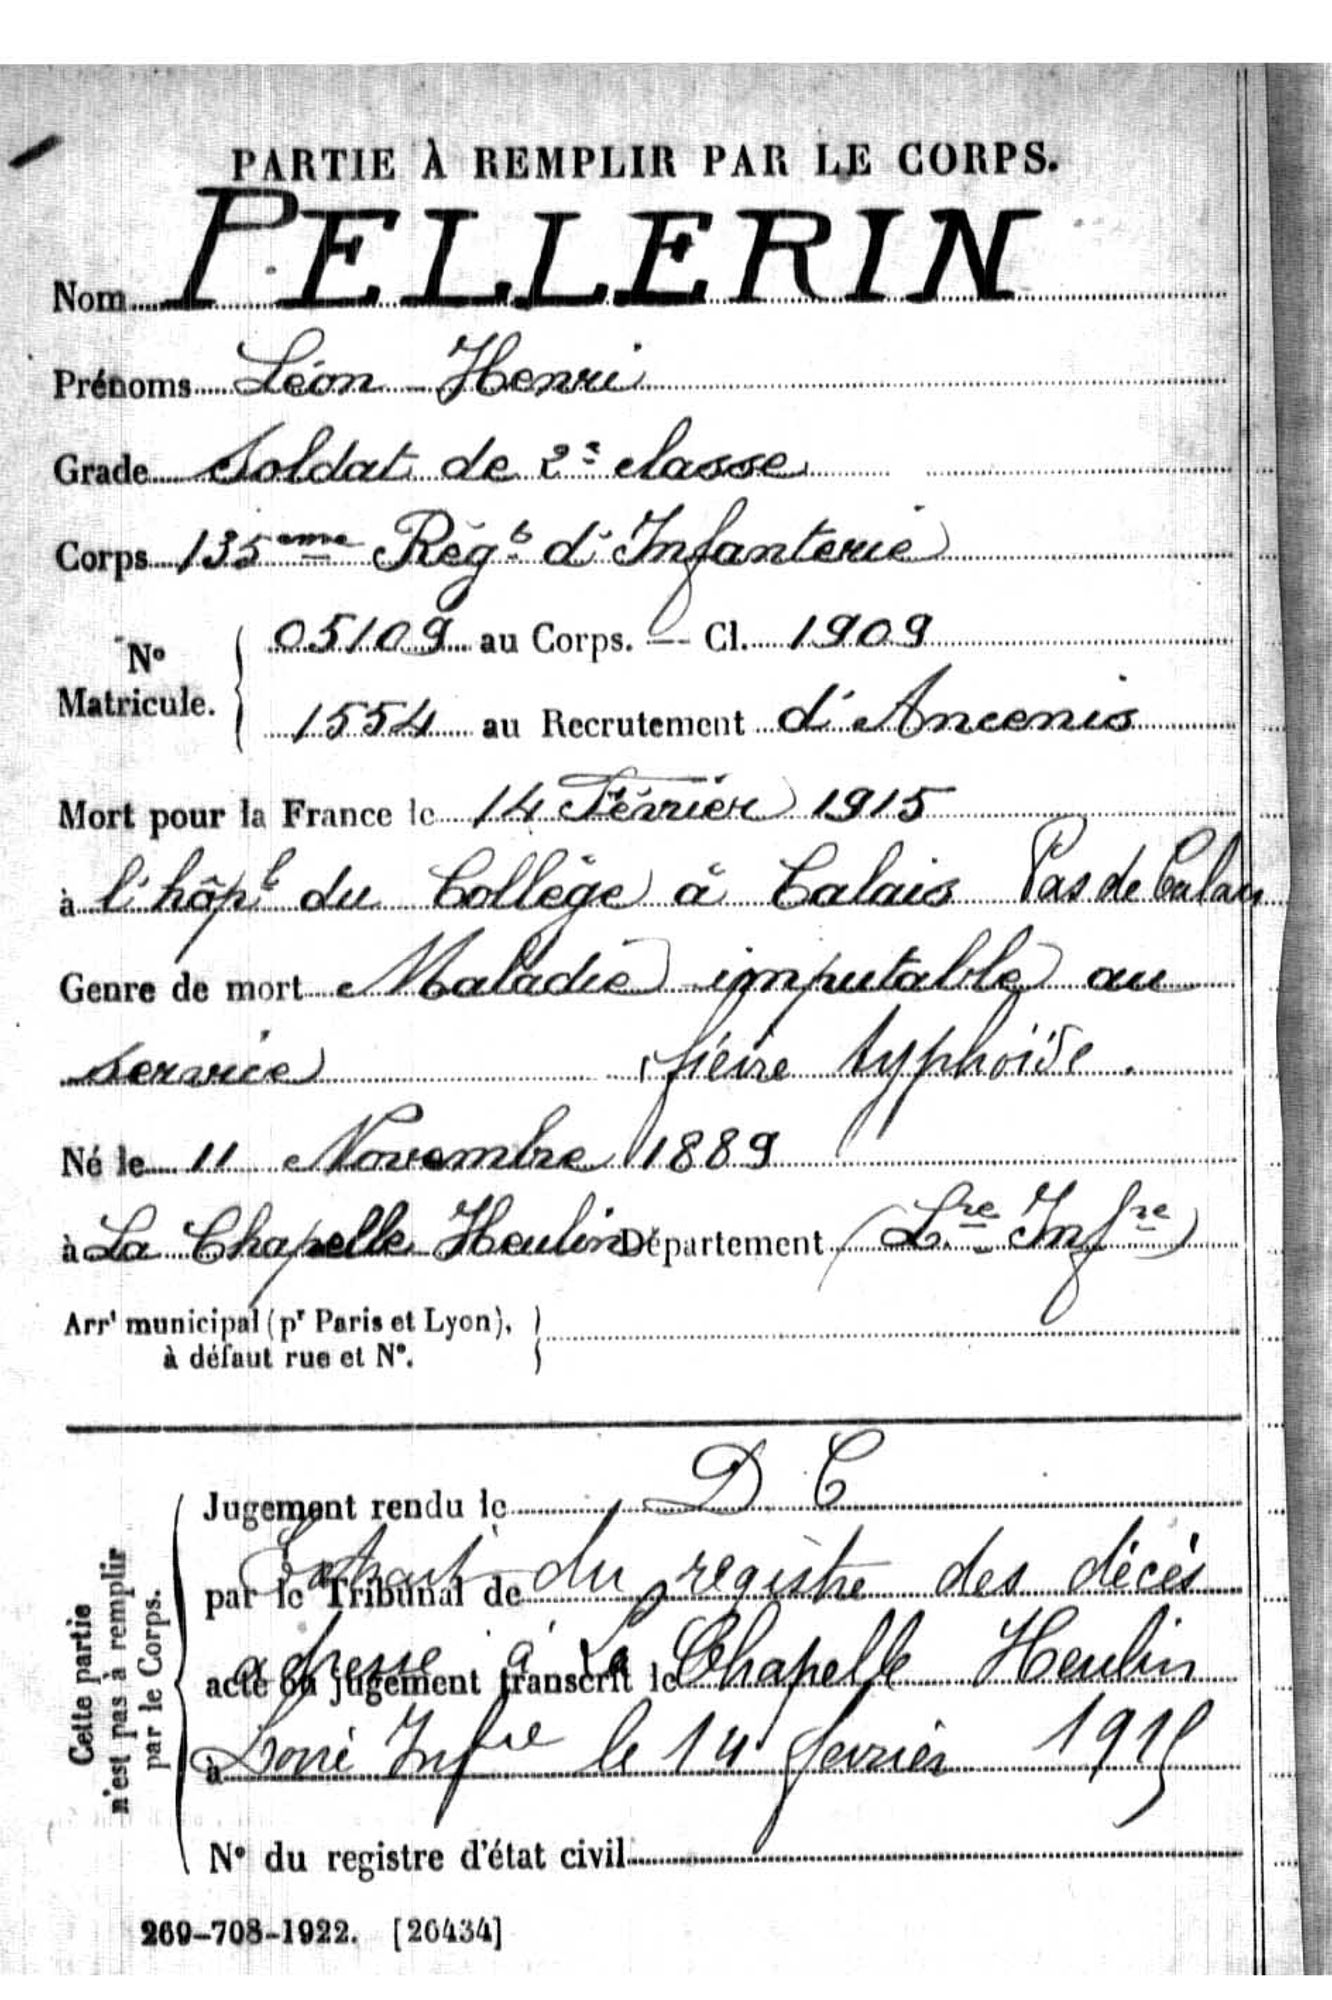 PARTIE À REMPLIR PAR LE CORPS.
Nom PELLERIN
Prénoms Léon Henri
Grade Soldat de 2e classe
Corps 135eme Régt d'Infanterie
No Matricule. 05109 au Corps. — Cl. 1909
1554 au Recrutement d'Ancenis
Mort pour la France le 14 Février 1915
à l'hôpl du Collège à Calais Pas de Calais
Genre de mort Maladie imputable au
service fièvre typhoïde.
Né le 11 Novembre 1889
à La Chapelle Heulin Département (Lre Infre)
Arrt municipal (pr Paris et Lyon),
à défaut rue et No.
Cette partie
n'est pas à remplir
par le Corps.
Jugement rendu le D C
par le Tribunal de Extrait du registre des décès
acte ou jugement transcrit le adressé à La Chapelle Heulin
à Loire Infre le 14 février 1915
No du registre d'état civil
269-708-1922. [26434]